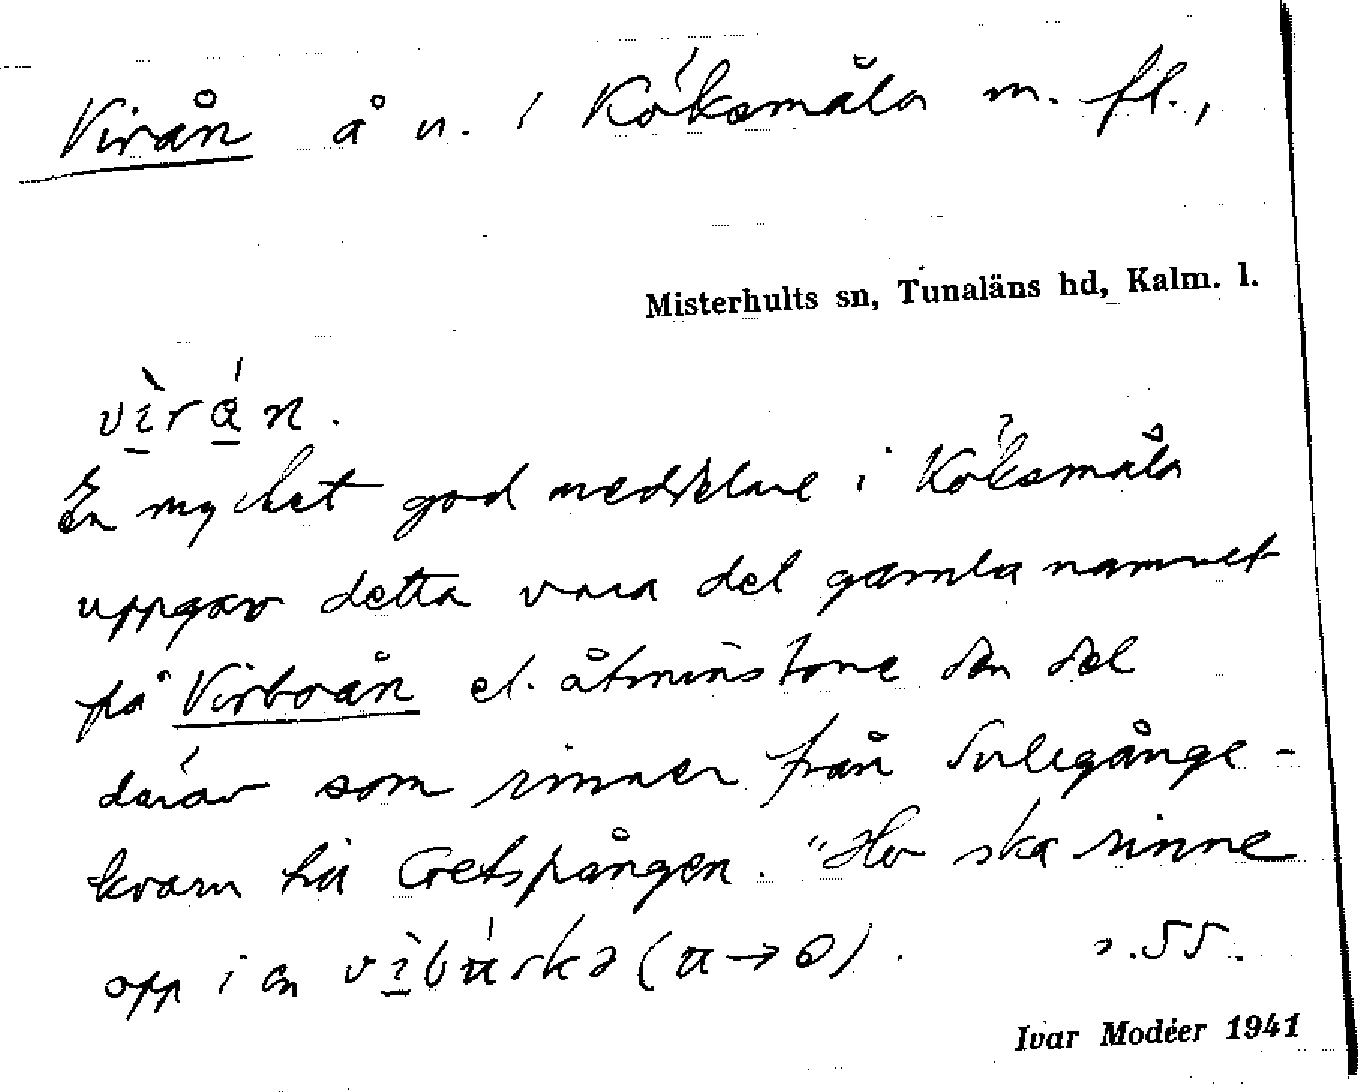 Virån å n. i Koksmåla m. fl.,
Misterhults sn, Tunaläns hd, Kalm. l.
vìrán.
En mycket god meddelare i Koksmåla
uppgav detta vara det gamla namnet
på Virboån el. åtminstone den del
därav som rinner från Sulegånge-
kvarn till Getspången. "Ho ska rinne
opp i en (a→o). s. 55.
Ivar Modéer 1941